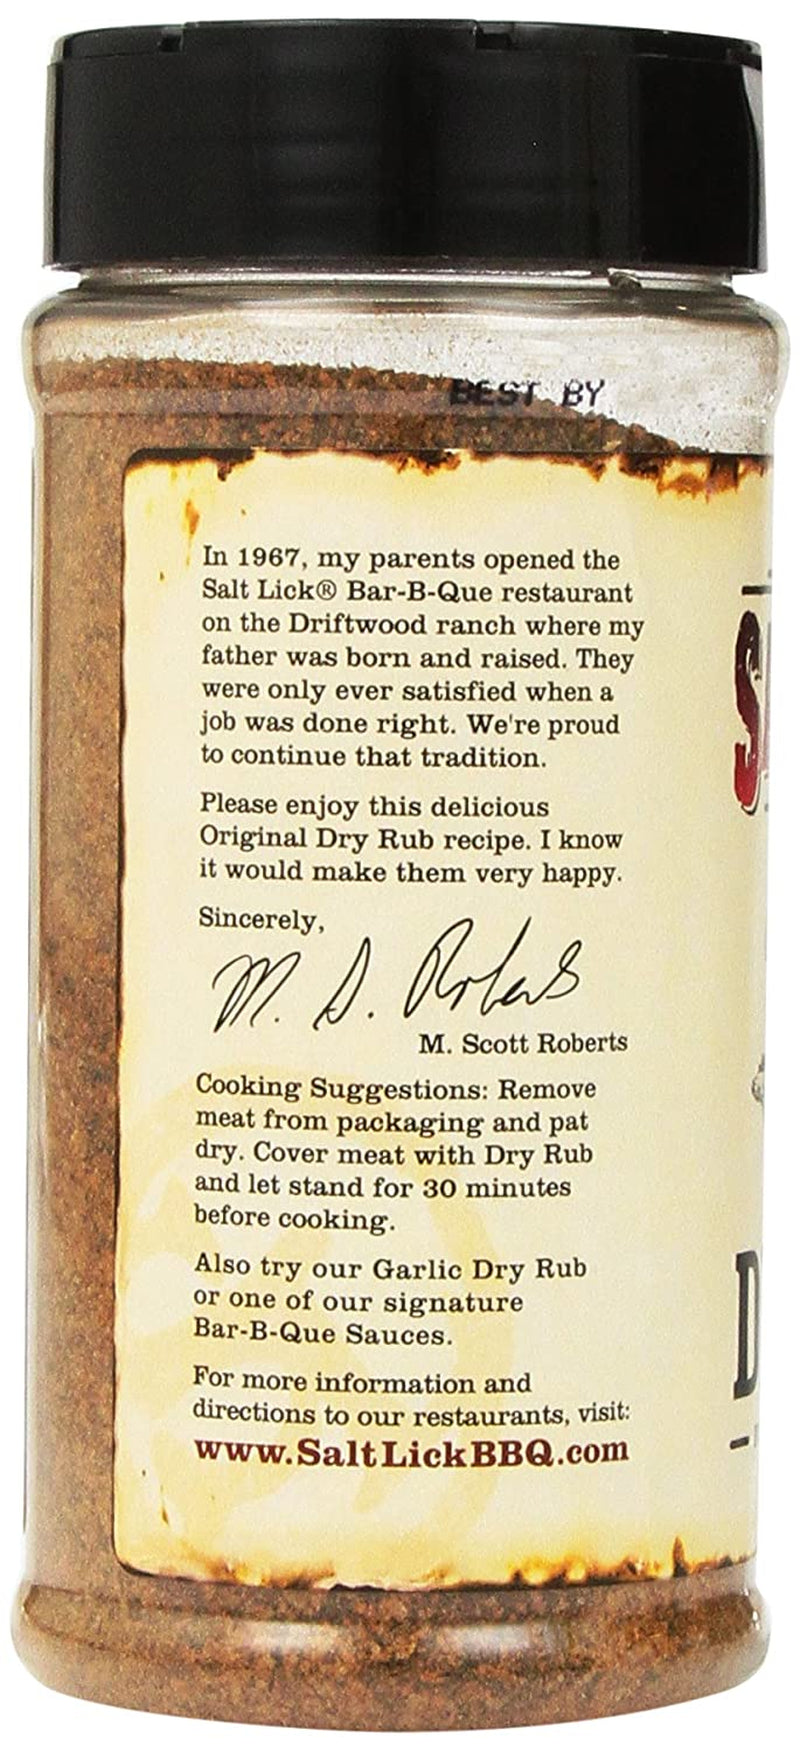 BEST BY
In 1967, my parents opened the
Salt Lick® Bar-B-Que restaurant
on the Driftwood ranch where my
father was born and raised. They
were only ever satisfied when a
job was done right. We're proud
to continue that tradition.
Please enjoy this delicious
Original Dry Rub recipe. I know
it would make them very happy.
Sincerely,
M. S. Roberts
M. Scott Roberts
Cooking Suggestions: Remove
meat from packaging and pat
dry. Cover meat with Dry Rub
and let stand for 30 minutes
before cooking.
Also try our Garlic Dry Rub
or one of our signature
Bar-B-Que Sauces.
For more information and
directions to our restaurants, visit:
www.SaltLickBBQ.com